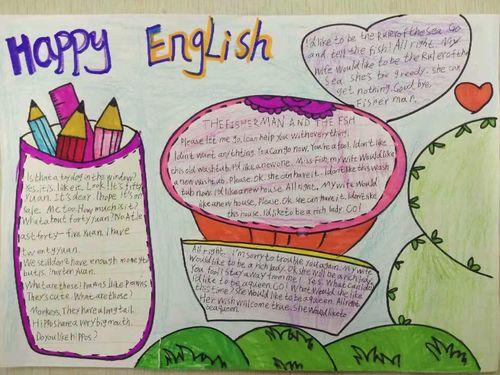 Happy English
I'd like to be the Ruler of the sea. Go
and tell the fish! All right. My
wife Would like to be the Ruler of the
sea. she's too greedy. she can
get nothing. Good bye.
Fisher man.
THE FISHERMAN AND THE FSH
Please let me go, I can help you with everything.
I didn't want anything. You can go now. You're a fool. I don't like
this old washtub. I'd like a new one. Miss Fish, my wife Would like
a new wash tub. Please. Ok. she can have it. I don't like this wash
tub now. I'd like a new house. All right. My wife would
like a new house. Please. Ok. she can have it. I don't like
this house. I'd like to be a rich lady. GO!
All right. I'm sorry to trouble you again. My wife
Would like to be a rich lady. Ok. she will be a rich lady.
You fool! Stay away from me! Yes. What can I do
I'd like to be a queen. GO! What Would she like
this time? she Would like to be a queen. All right
Her wish will come true. She Would like to
be a queen.
Is that a toy dog in the window?
Yes, it is. I like it. Look! It's fifty
Yuan. It's dear. I hope it's on
Me too. How much is it?
What about forty yuan? No. At le
ast forty-five Yuan. I have
twenty yuan.
We still don't have enough money
What are these? Prawns. I like prawns
They're cute. What are those?
Monkeys. They have a long tail.
Hippos have a very big mouth.
Do you like hippos?